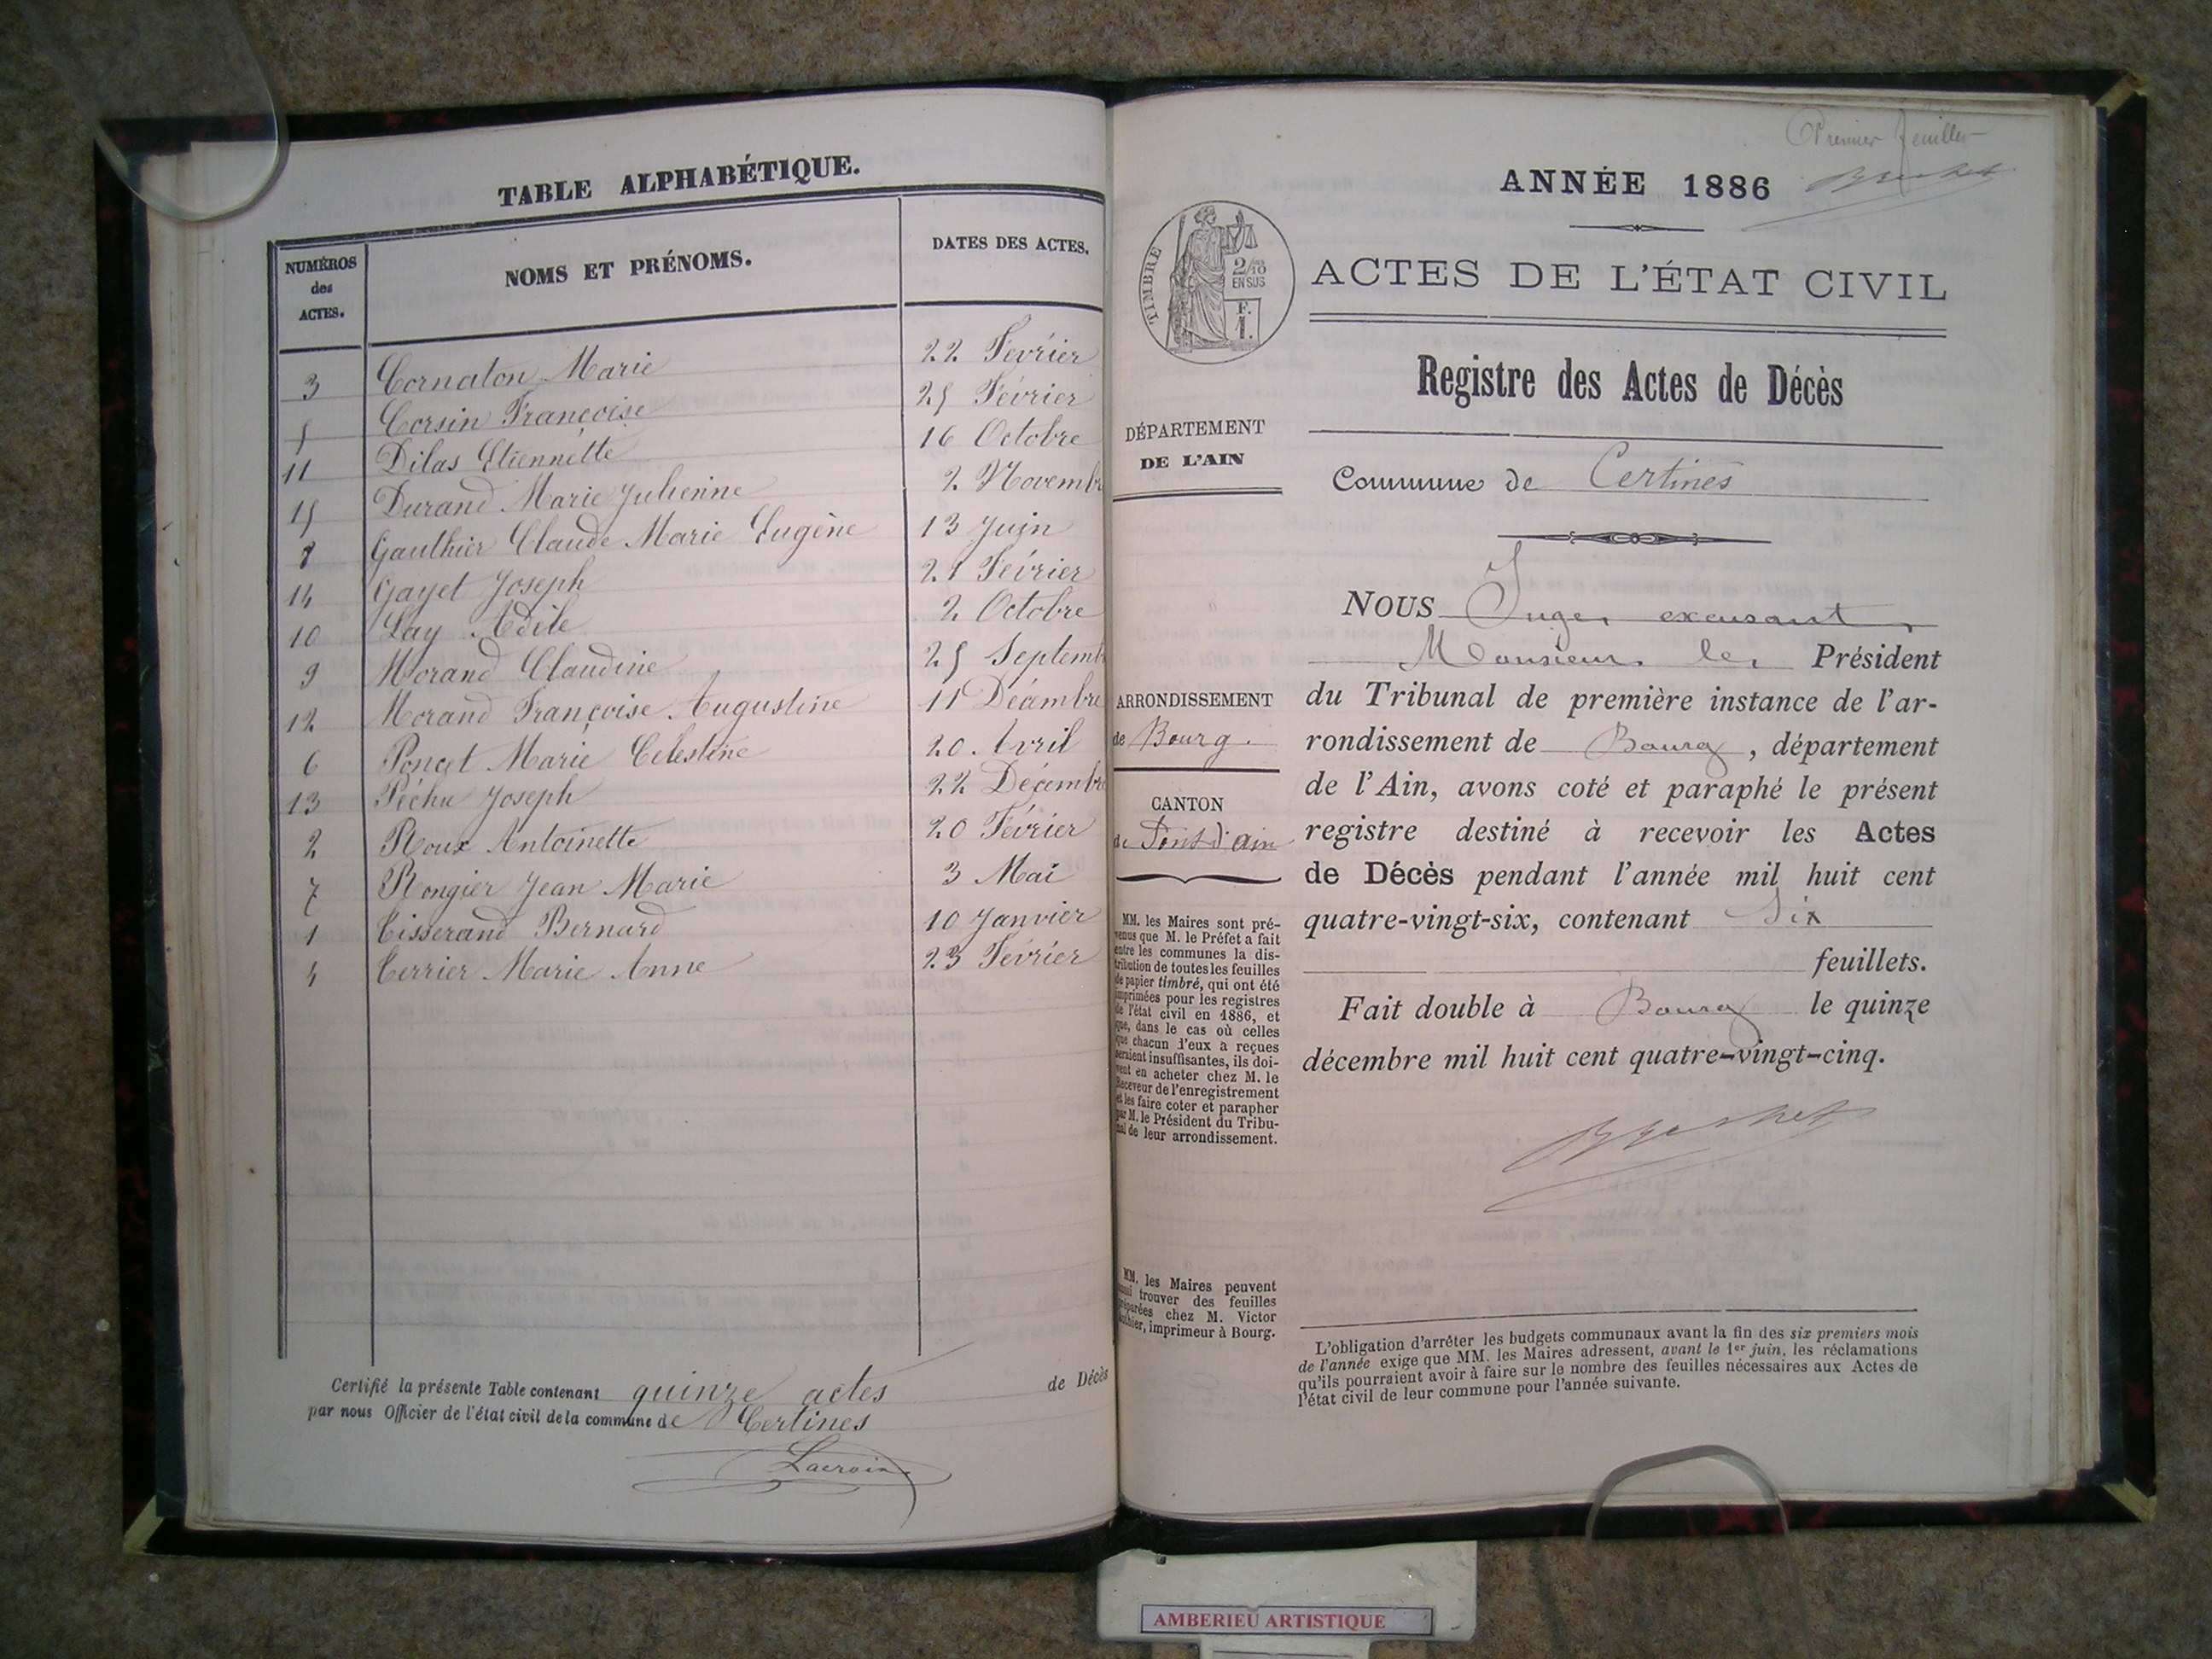 TABLE ALPHABÉTIQUE.
NUMÉROS des ACTES.
NOMS ET PRÉNOMS.
DATES DES ACTES.
3 Cornaton Marie 22 Fevrier
5 Corsin Françoise 25 Février
11 Dilas Etiennette 16 Octobre
15 Durand Marie Julienne 2 Novembr
8 Gauthier Claude Marie Eugène 13 Juin
14 Gayet Joseph Février
10 Lay Adèle 2 Octobre
9 Morand Claudine 25 Septemb
12 Morand Françoise Augustine 11 Décembre
6 Poncet Marie Celestine 20 Avril
13 Péchu Joseph Décembre
2 Roux Antoinette 20 Février
7 Rongier Jean Marie 3 Mai
1 Tisserand Bernard 10 Janvier
4 Terrier Marie Anne 23 Février
Certifié la présente Table contenant quinze actes de Décès
par nous Officier de l'état civil de la commune de Certines
Lacroix
Premier feuillet
ANNÉE 1886
TIMBRE
2/10
EN SUS
F.
1.
ACTES DE L'ÉTAT CIVIL
Registre des Actes de Décès
DÉPARTEMENT
DE L'AIN
Commune de Certines
NOUS Juge, excusant,
Monsieur le, Président
du Tribunal de première instance de l'ar-
rondissement de Bourg, département
de l'Ain, avons coté et paraphé le présent
registre destiné à recevoir les Actes
de Décès pendant l'année mil huit cent
quatre-vingt-six, contenant Six
feuillets.
Fait double à Bourg le quinze
décembre mil huit cent quatre-vingt-cinq.
ARRONDISSEMENT
de Bourg.
CANTON
de Pont d'ain
MM. les Maires sont pré-
venus que M. le Préfet a fait
entre les communes la dis-
tribution de toutes les feuilles
de papier timbré, qui ont été
imprimées pour les registres
de l'état civil en 1886, et
que, dans le cas où celles
que chacun d'eux a reçues
seraient insuffisantes, ils doi-
vent en acheter chez M. le
Receveur de l'enregistrement
et les faire coter et parapher
par M. le Président du Tribu-
nal de leur arrondissement.
MM. les Maires peuvent
aussi trouver des feuilles
préparées chez M. Victor
imprimeur à Bourg.
L'obligation d'arrêter les budgets communaux avant la fin des six premiers mois
de l'année exige que MM. les Maires adressent, avant le 1er juin, les réclamations
qu'ils pourraient avoir à faire sur le nombre des feuilles nécessaires aux Actes de
l'état civil de leur commune pour l'année suivante.
AMBERIEU ARTISTIQUE